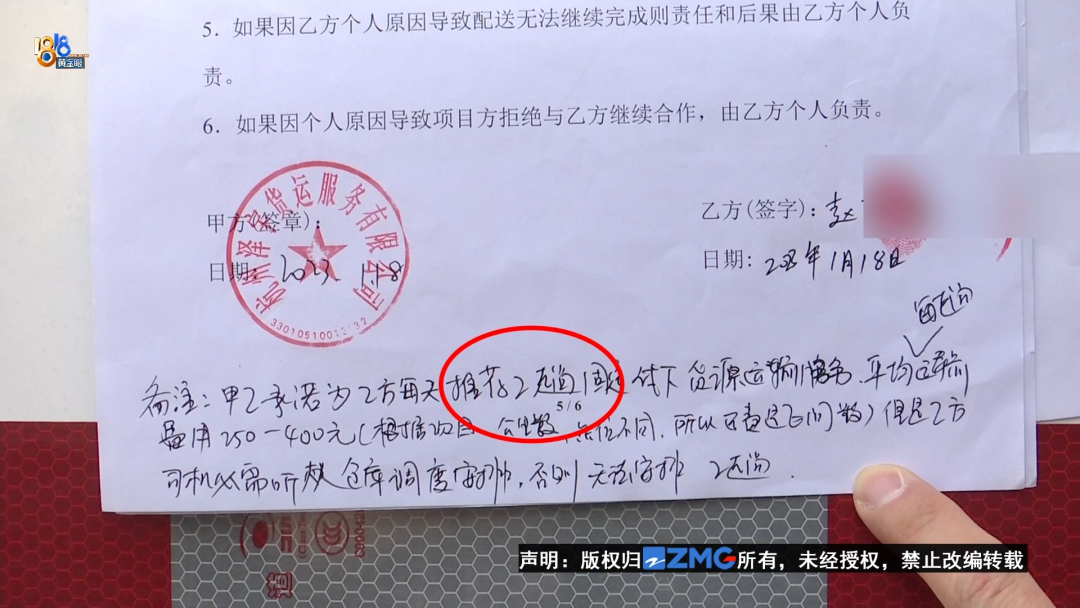 1818
黄金眼
5. 如果因乙方个人原因导致配送无法继续完成则责任和后果由乙方个人负
责。
6. 如果因个人原因导致项目方拒绝与乙方继续合作，由乙方个人负责。
甲方(签章)：
乙方(签字)：赵
日期：2023 1.18
日期：2023年1月18日
货运服务有限公司
每天趟
备注：甲乙承诺为乙方每天推荐2天趟固定线下货源运输服务.平均运输
费用250-400元(根据项目 公里数 点位不同.所以
5/6
但是乙方
司机必需听从仓库调度安排，否则无法安排
声明：版权归ZMG所有，未经授权，禁止改编转载